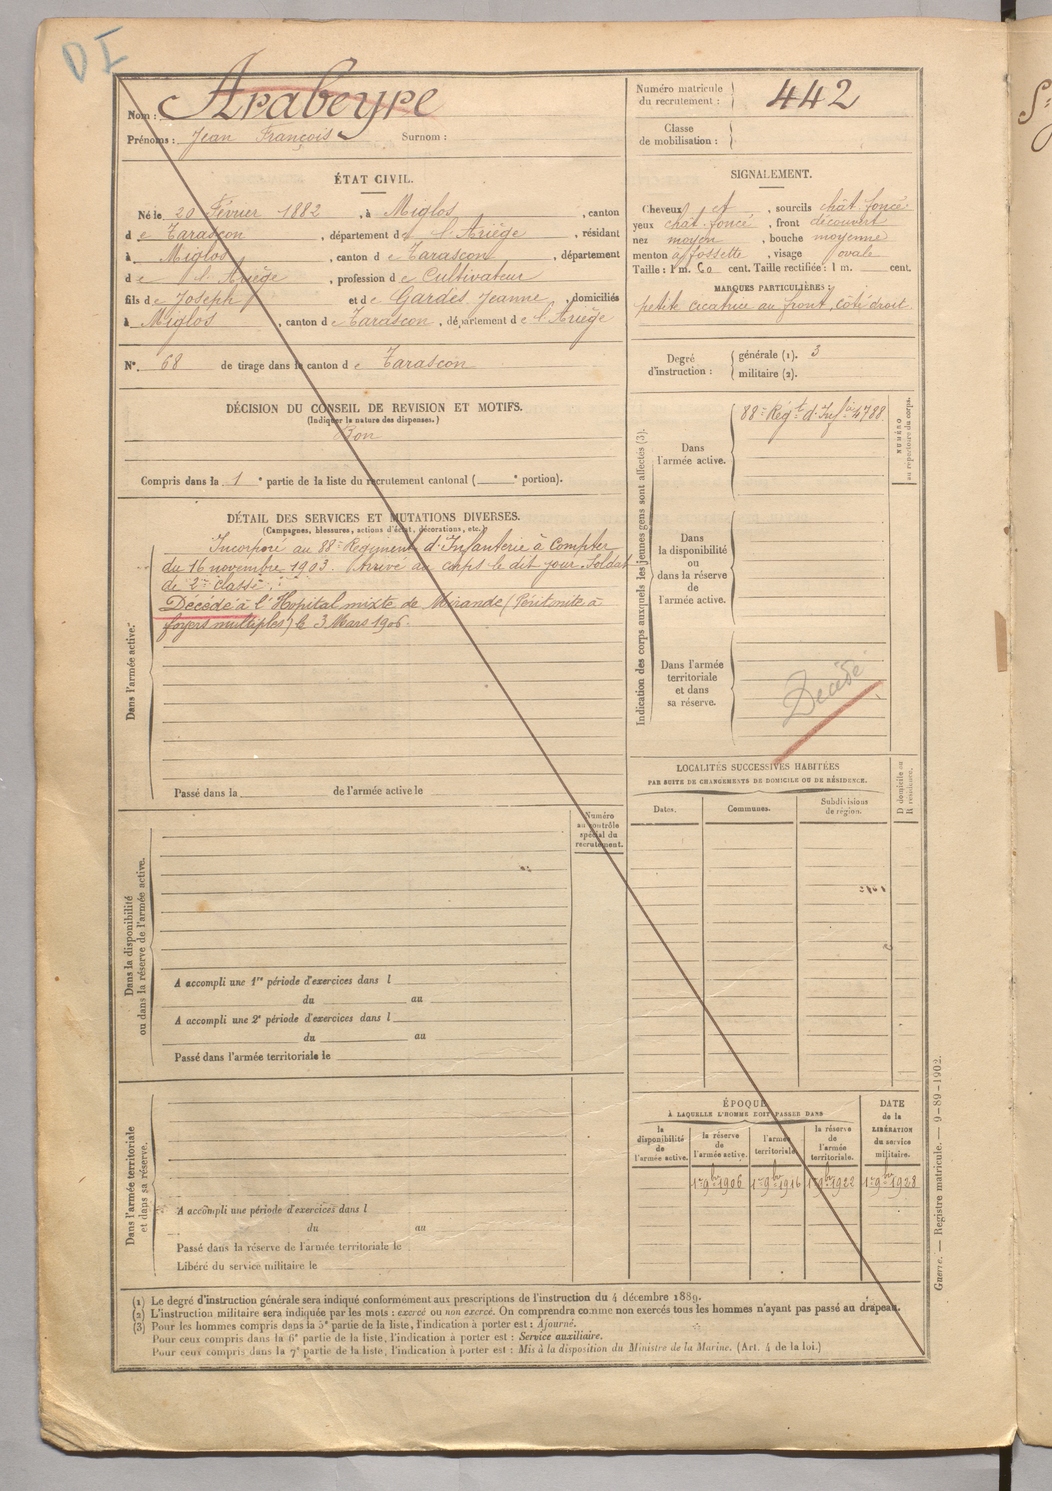 D I
Nom : Arabeyre
Prénoms : Jean François Surnom :
Numéro matricule du recrutement : 442
Classe de mobilisation :
ÉTAT CIVIL.
Né le 20 Février 1882, à Miglos, canton
de Tarascon, département de l'Ariège, résidant
à Miglos, canton de Tarascon, département
de l'Ariège, profession de Cultivateur
fils de Joseph et de Gardes Jeanne, domiciliés
à Miglos, canton de Tarascon, département de l'Ariège
N° 68 de tirage dans le canton de Tarascon
DÉCISION DU CONSEIL DE REVISION ET MOTIFS.
(Indiquer la nature des dispenses.)
Bon
Compris dans la 1e partie de la liste du recrutement cantonal ( e portion).
SIGNALEMENT.
Cheveux et, sourcils chât. foncé
yeux chât. foncé, front découvert
nez moyen, bouche moyenne
menton à fossette, visage ovale
Taille : 1 m. 60 cent. Taille rectifiée : 1 m. cent.
MARQUES PARTICULIÈRES :
petite cicatrice au front, côté droit.
Degré d'instruction : générale (1). 3
militaire (2).
DÉTAIL DES SERVICES ET MUTATIONS DIVERSES.
(Campagnes, blessures, actions d'éclat, décorations, etc.)
Dans l'armée active.
Incorporé au 88e Régiment d'Infanterie à compter
du 16 novembre 1903. Arrivé au corps le dit jour. Soldat
de 2e classe.
Décédé à l'Hopital mixte de Mirande (Péritonite à
foyers multiples) le 3 Mars 1906.
Passé dans la de l'armée active le
Indication des corps auxquels les jeunes gens sont affectés (3).
NUMÉRO au répertoire du corps.
Dans l'armée active.
88e Régt d'Infie 4788
Dans la disponibilité ou dans la réserve de l'armée active.
Dans l'armée territoriale et dans sa réserve.
Décédé
LOCALITÉS SUCCESSIVES HABITÉES
PAR SUITE DE CHANGEMENTS DE DOMICILE OU DE RÉSIDENCE.
D domicile ou R résidence.
Dates. Communes. Subdivisions de région.
Numéro au contrôle spécial du recrutement.
Dans la disponibilité ou dans la réserve de l'armée active.
A accompli une 1re période d'exercices dans l
du au
A accompli une 2e période d'exercices dans l
du au
Passé dans l'armée territoriale le
Dans l'armée territoriale et dans sa réserve.
A accompli une période d'exercices dans l
du au
Passé dans la réserve de l'armée territoriale le
Libéré du service militaire le
ÉPOQUE
À LAQUELLE L'HOMME DOIT PASSER DANS
la disponibilité de l'armée active.
la réserve de l'armée active.
l'armée territoriale.
la réserve de l'armée territoriale.
DATE de la LIBÉRATION du service militaire.
1er 9bre 1906 1er 9bre 1916 1er 9bre 1922 1er 9bre 1928
(1) Le degré d'instruction générale sera indiqué conformément aux prescriptions de l'instruction du 4 décembre 1889.
(2) L'instruction militaire sera indiquée par les mots : exercé ou non exercé. On comprendra comme non exercés tous les hommes n'ayant pas passé au drapeau.
(3) Pour les hommes compris dans la 5e partie de la liste, l'indication à porter est : Ajourné.
Pour ceux compris dans la 6e partie de la liste, l'indication à porter est : Service auxiliaire.
Pour ceux compris dans la 7e partie de la liste, l'indication à porter est : Mis à la disposition du Ministre de la Marine. (Art. 4 de la loi.)
Guerre. — Registre matricule. — 9-89-1902.